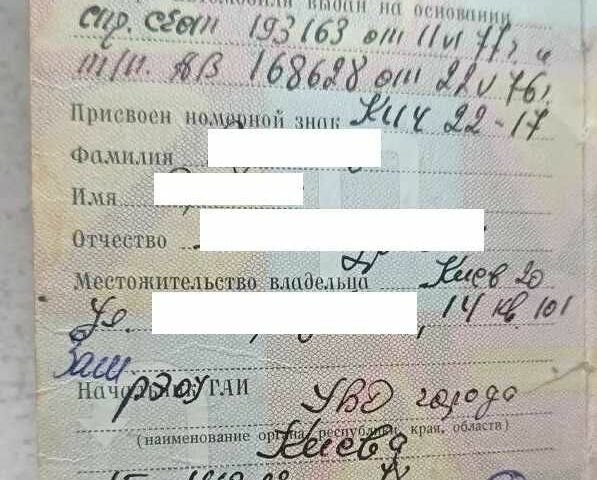 выдан на основании
спр. счет 193163 от 11 VI 77 г. и
т/п. АВ 168628 от 22 V 76 г.
Присвоен номерной знак КИЧ 22-17
Фамилия
Имя
Отчество
Местожительство владельца Киев 20
Ул. , 14 кв 101
Зам
Начальник ГАИ УВД города
(наименование органа, республики, края, области)
Киева